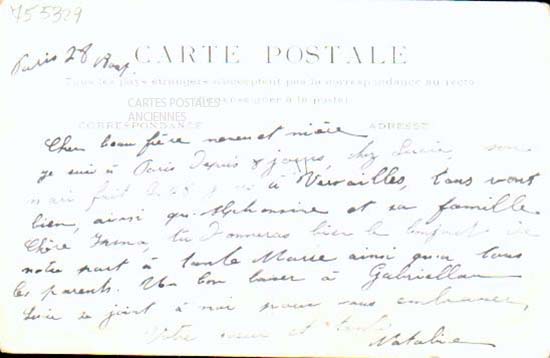 755329
Paris 28 Aout
CARTE POSTALE
Tous les pays étrangers n'acceptent pas la correspondance au recto
enseigner à la poste
CARTES POSTALES
ANCIENNES
CORRESPONDANCE ADRESSE
Cher beau frère neveu et nièce
je suis à Paris depuis 8 jours, chez Lucie, son
mari fait à Versailles, tous vont
bien, ainsi qu'Alphonsine et sa famille
Chère Irma, tu donneras bien le de
notre part à tante Marie ainsi qu'a tous
les parents. Un bon baiser à
Lucie se joint à moi pour vous embrasser,
Votre sœur et tante
Natalie